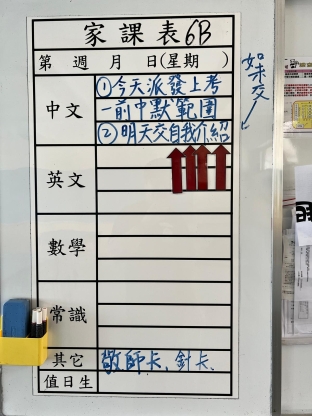 家課表 6B
第 週 月 日(星期 )
中文
①今天派發上考
一前中默範圍
②明天交自我介紹
如未交
英文
數學
常識
其它
敬師卡、針卡、
值日生